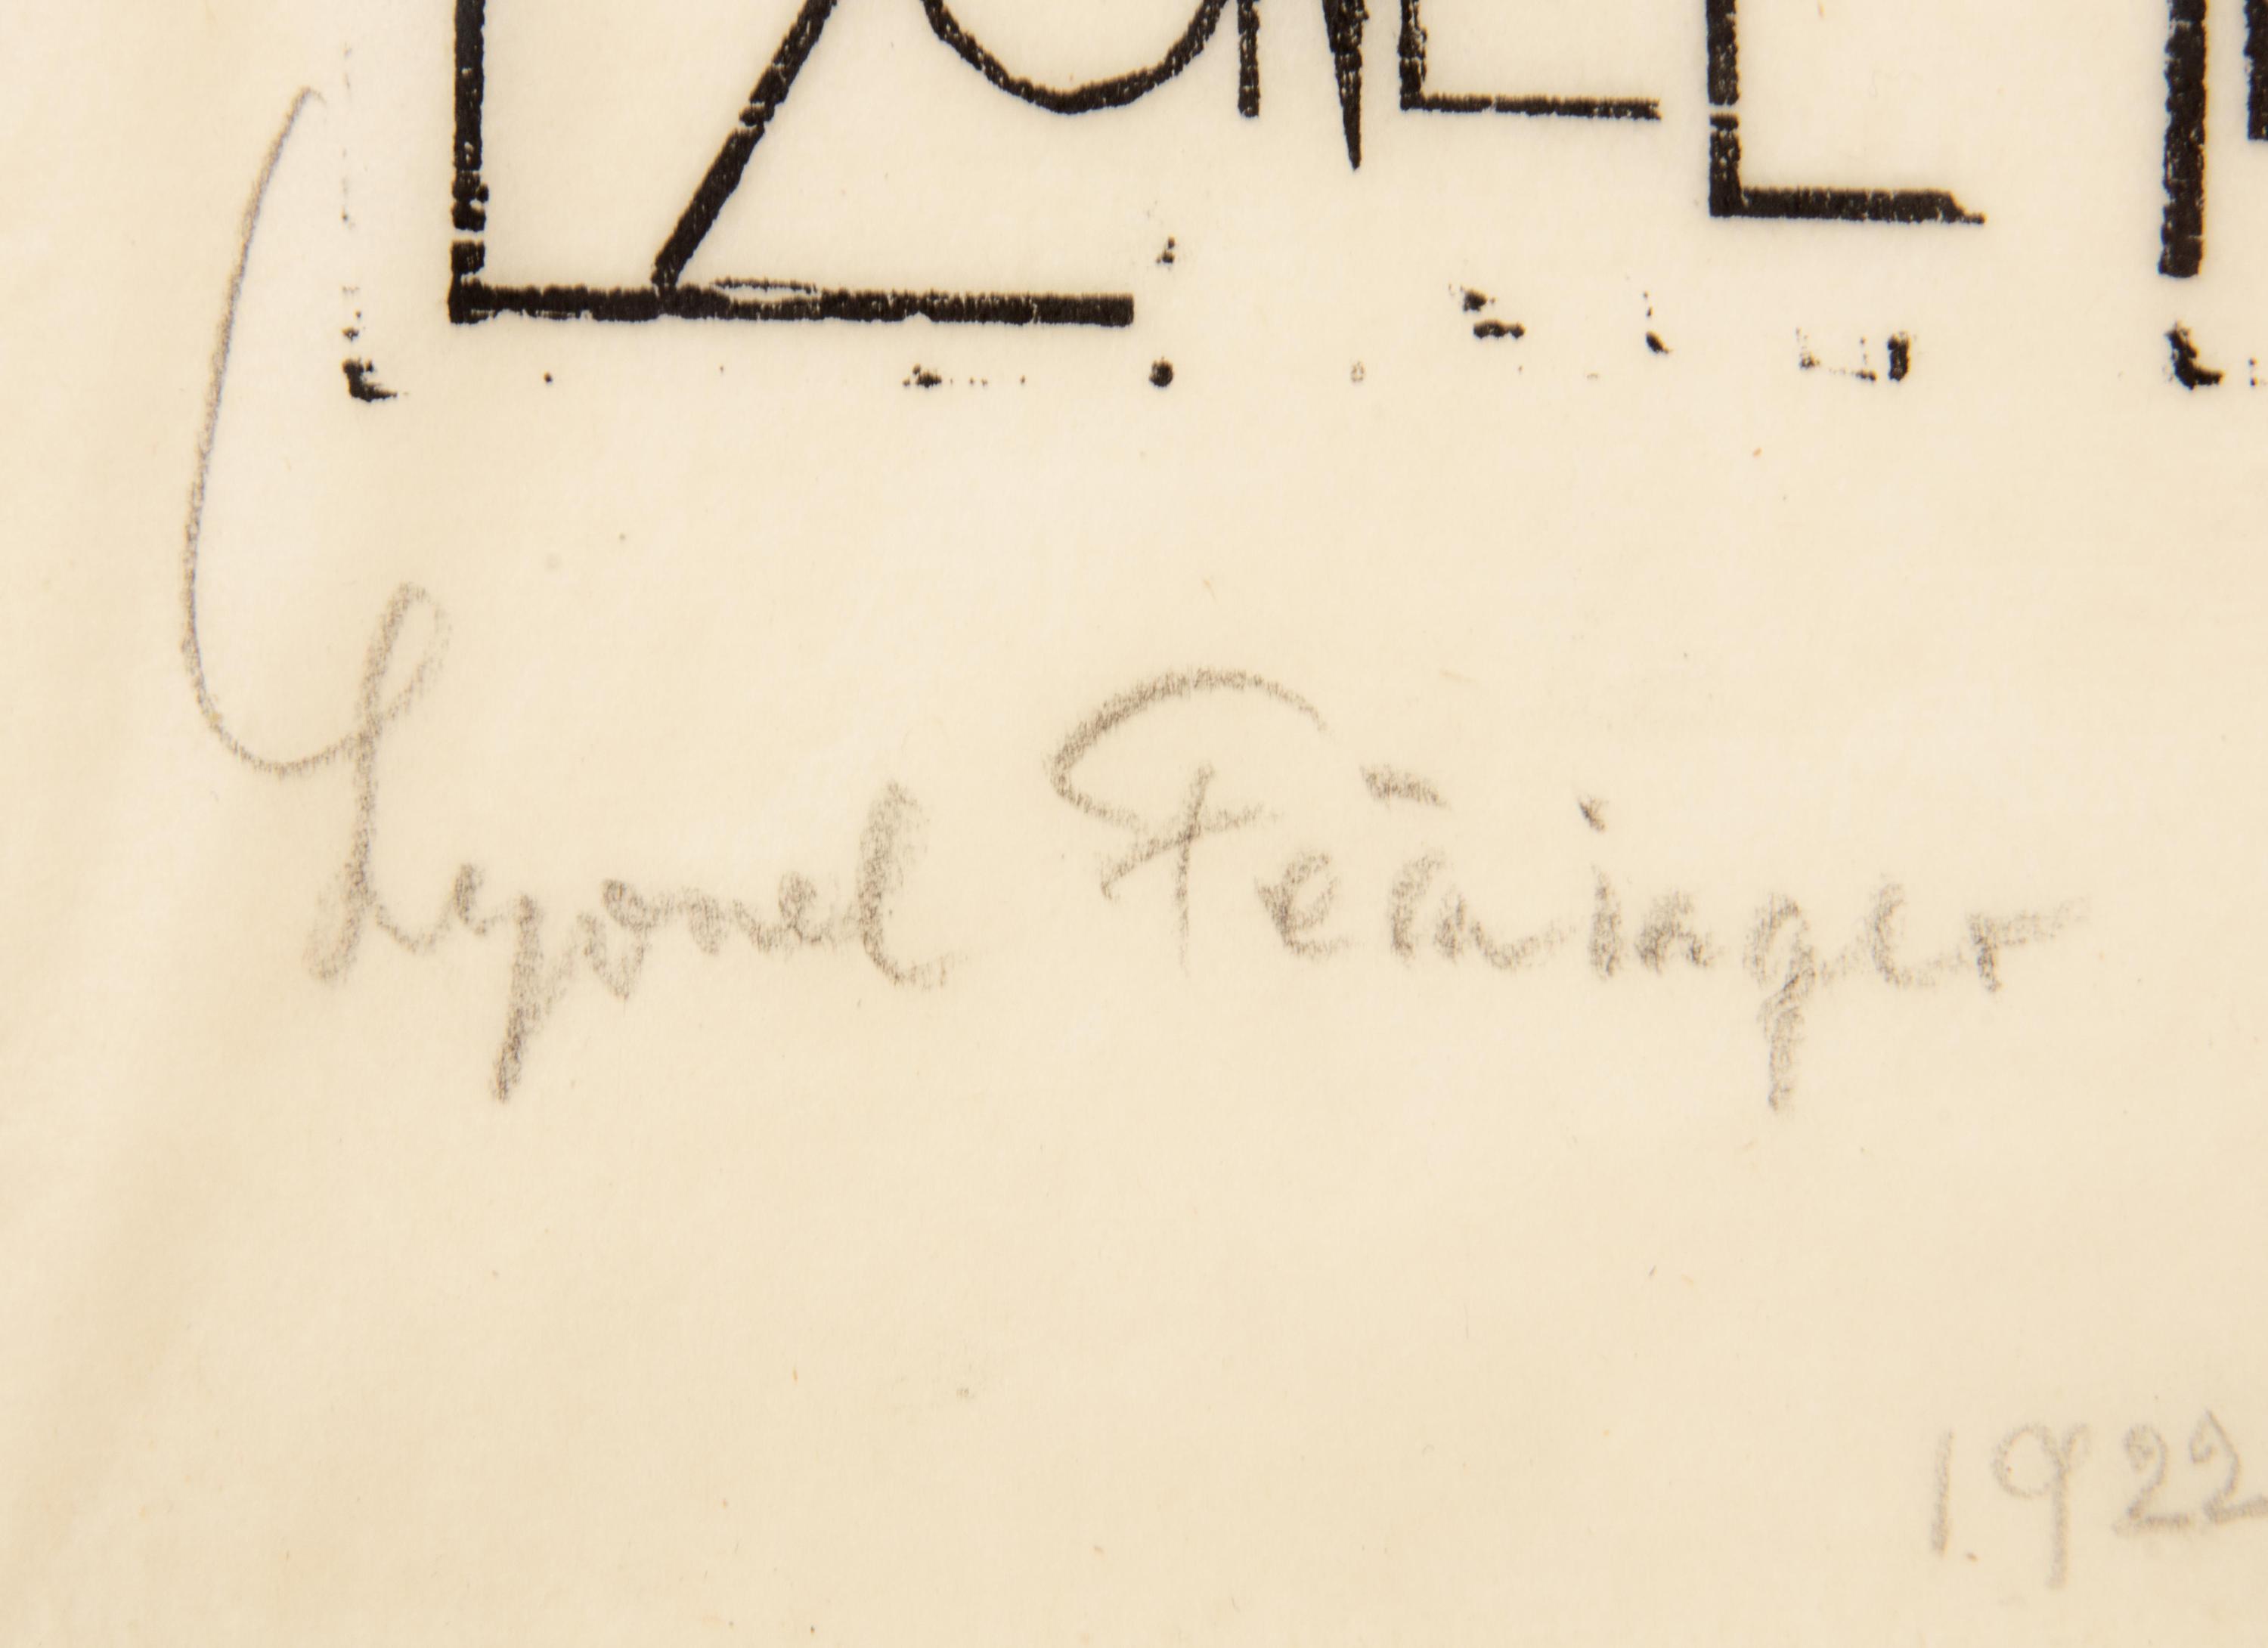 Lyonel Feininger
1922